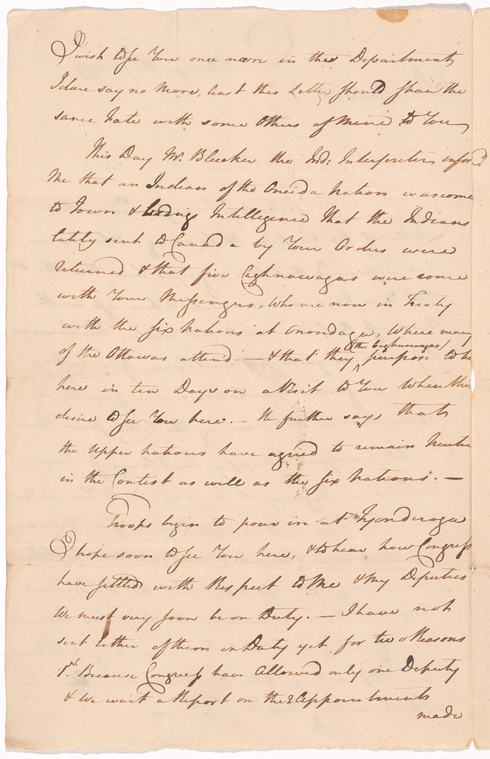 I wish to See You once more in this Department,
I dare say no More, least this Letter should share the
same Fate with some Others of Mine to You
This Day Mr. Bleeker the Ind: Interpreter inform'd
Me that an Indian of the Oneida Nation was come
to Town & brings Intelligence That the Indians
lately sent to Canada by Your Orders were
returned & that five Caghnawagas were come
with Your Messengers, Who are now in Treaty
with the six Nations at Onondaga, Where many
of the Ottawas attend.— & that they (the Caghnawagas) purpose to be
here in ten Days on a Visit to You When they
desire to See You here.— He further says that
the Upper Nations have agreed to remain Neuter
in the Contest as well as the six Nations.—
Troops begin to pour in at Tyonderoga
I hope soon to See You here, & to hear how Congress
have settled with Respect to Me & My Deputies
We must very soon be on Duty.— I have not
sent either of them on Duty yet for two Reasons
1st. Because Congress have Allowed only one Deputy
& we want a Report on the 2 Appointments
made